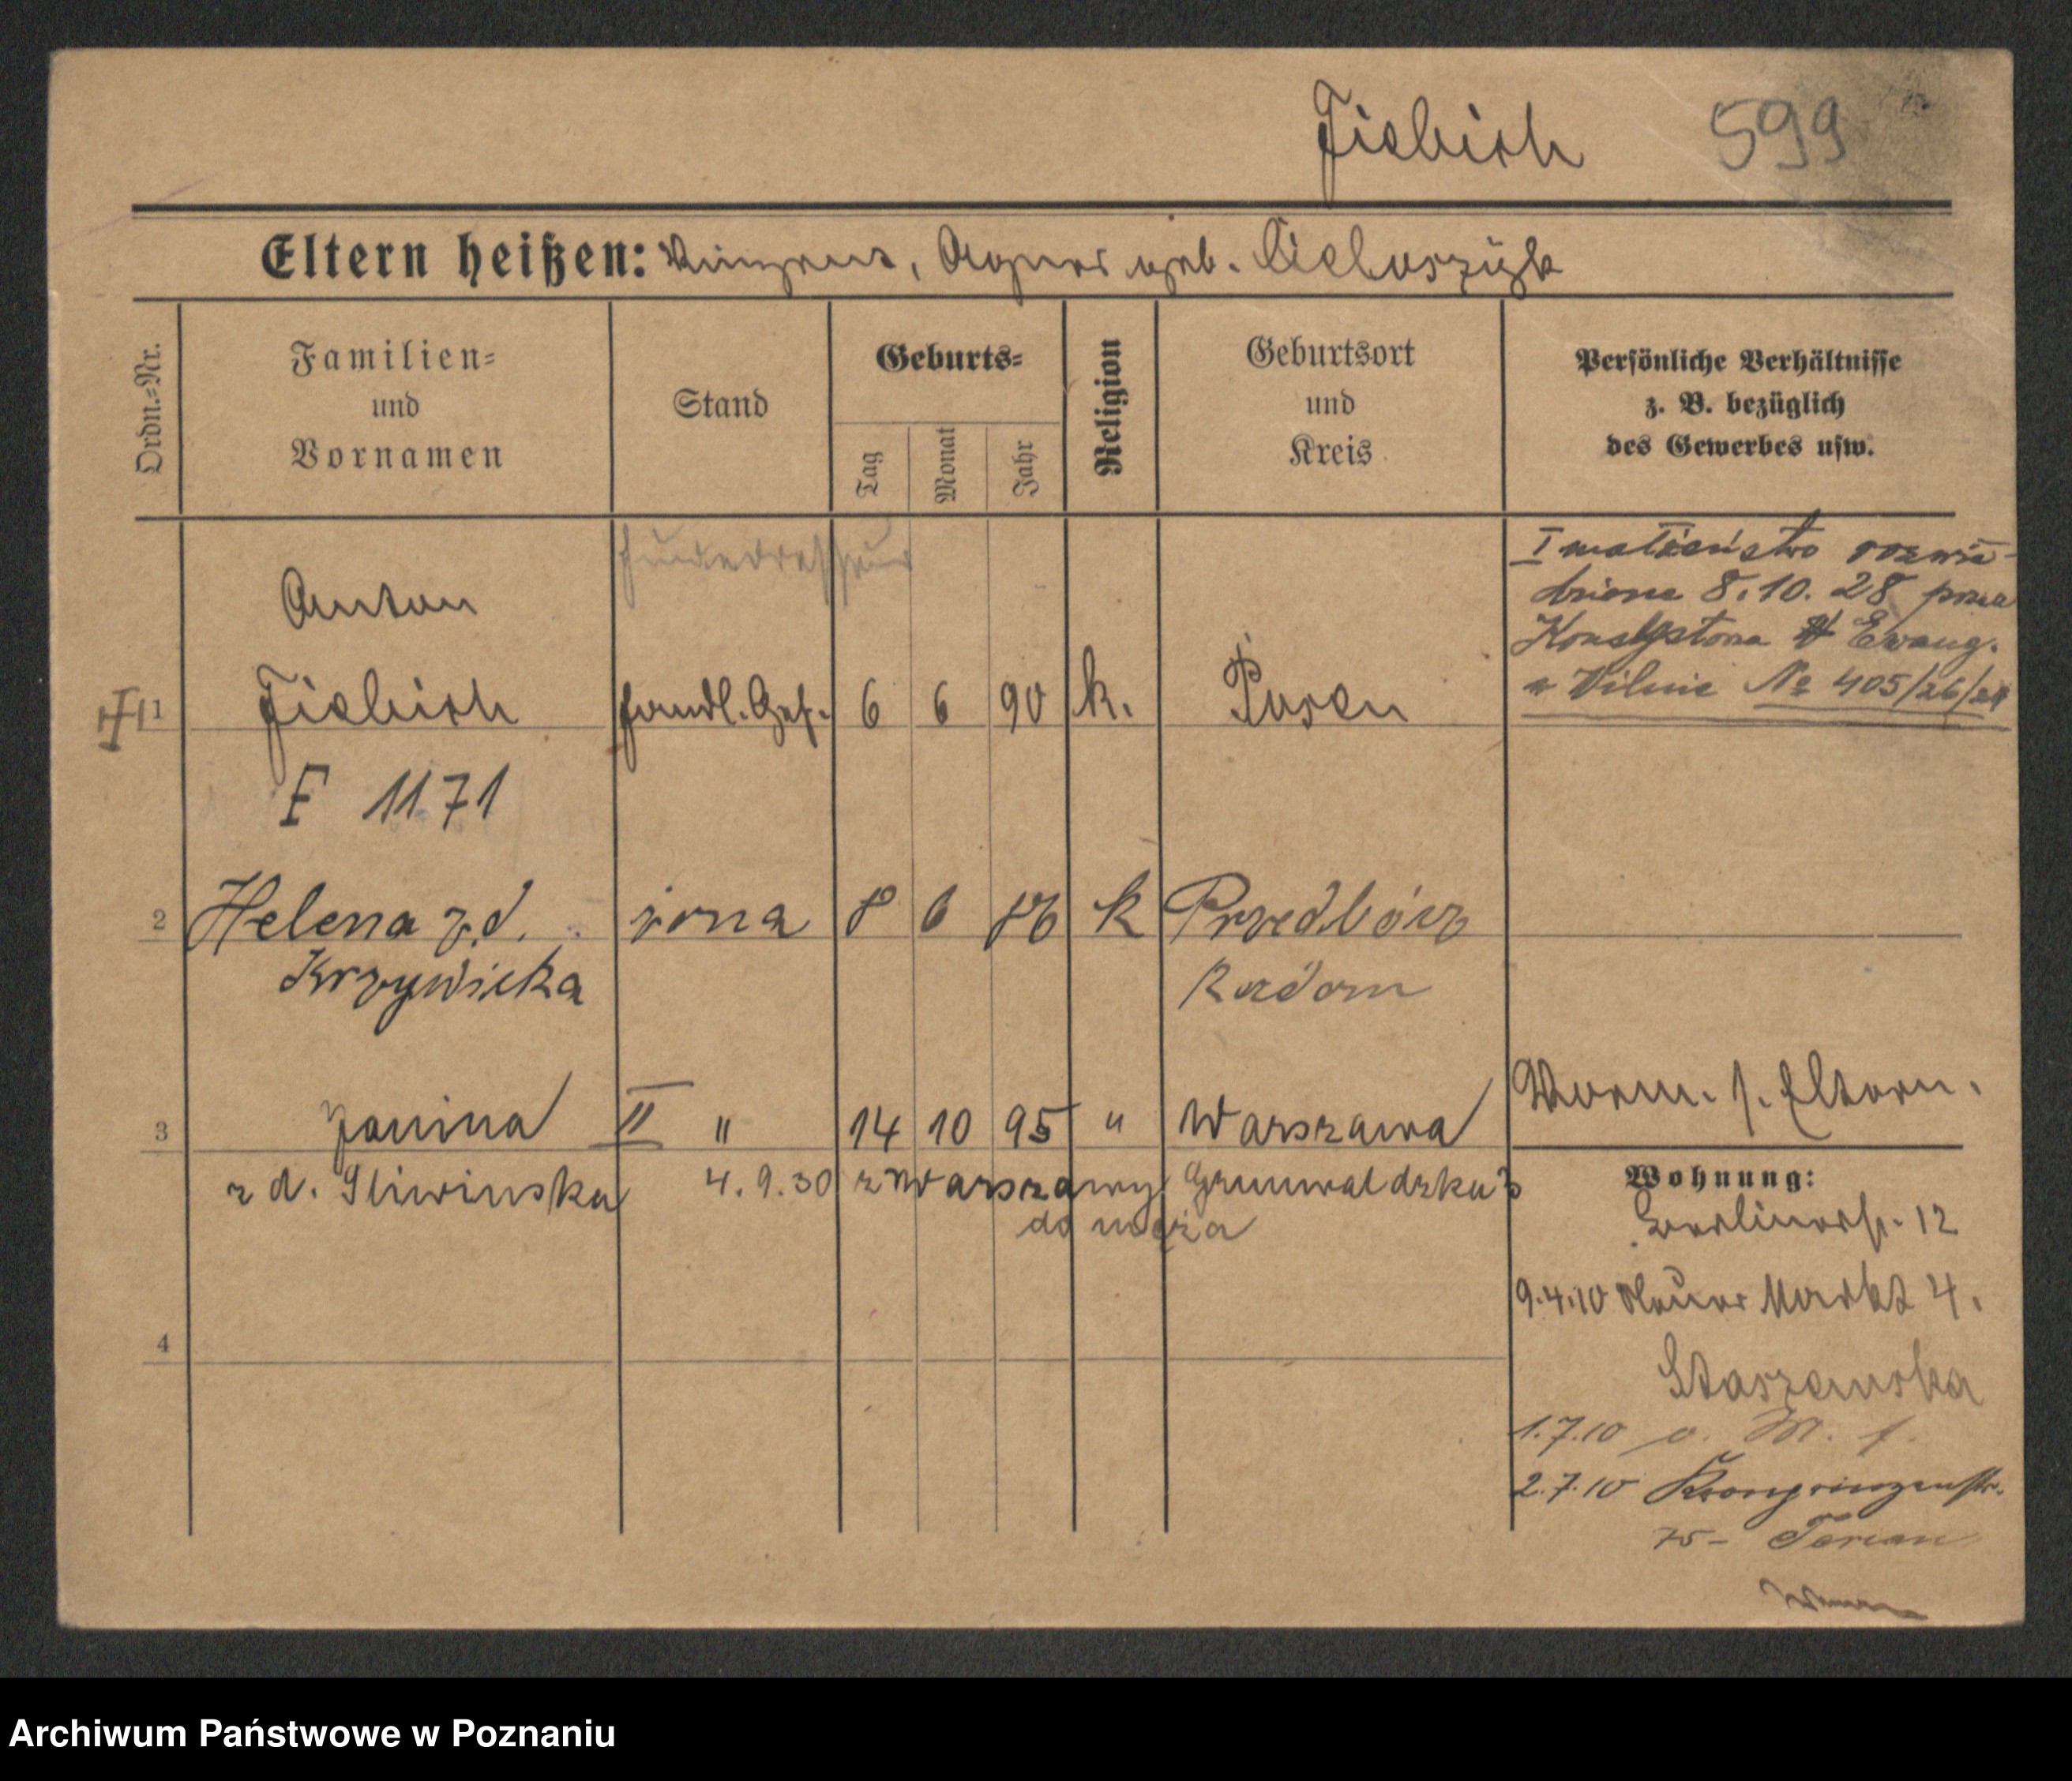 Fiebich 599
Eltern heißen: Vinzent, Agnes geb.
Ordn.=Nr.
Familien=
und
Vornamen
Stand
Geburts=
Tag
Monat
Jahr
Religion
Geburtsort
und
Kreis
Persönliche Verhältnisse
z. B. bezüglich
des Gewerbes usw.
I małżeństwo rozwie-
dzione 8.10.28 przez
Ewang.
w Wilnie № 405/26/28
Anton
1 Fiebich Handl. Geh. 6 6 90 k. Posen
F 1171
2 Helena z d. żona 8 6 86 k Przedbórz
Krzywicka Radom
Vorm. s. Eltern.
3 Janina II " 14 10 95 " Warszawa
z d. Sliwinska 4.9.30 z Warszawy Grunwaldzka 3
do męża
Wohnung:
Berlinerstr. 12
9.4.10 Neuer Markt 4.
4
Staszewska
1.7.10
2.7.10 Kronprinzenstr.
75-
Archiwum Państwowe w Poznaniu